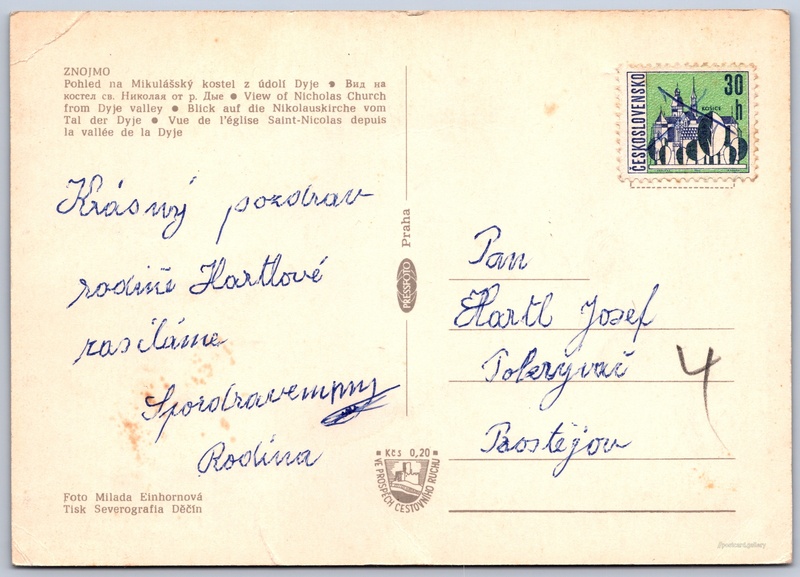 ZNOJMO
Pohled na Mikulášský kostel z údolí Dyje • Вид на
костел св. Николая от р. Дые • View of Nicholas Church
from Dyje valley • Blick auf die Nikolauskirche vom
Tal der Dyje • Vue de l'église Saint-Nicolas depuis
la vallée de la Dyje
Krásný pozdrav
rodině Hartlové
zasíláme
Spozdravem
Rodina
Foto Milada Einhornová
Tisk Severografia Děčín
Praha
PRESSFOTO
Kčs 0,20
VE PROSPĚCH CESTOVNÍHO RUCHU
ČESKOSLOVENSKO
30
h
KOŠICE
Pan
Hartl Josef
Pokrývač
Prostějov
4